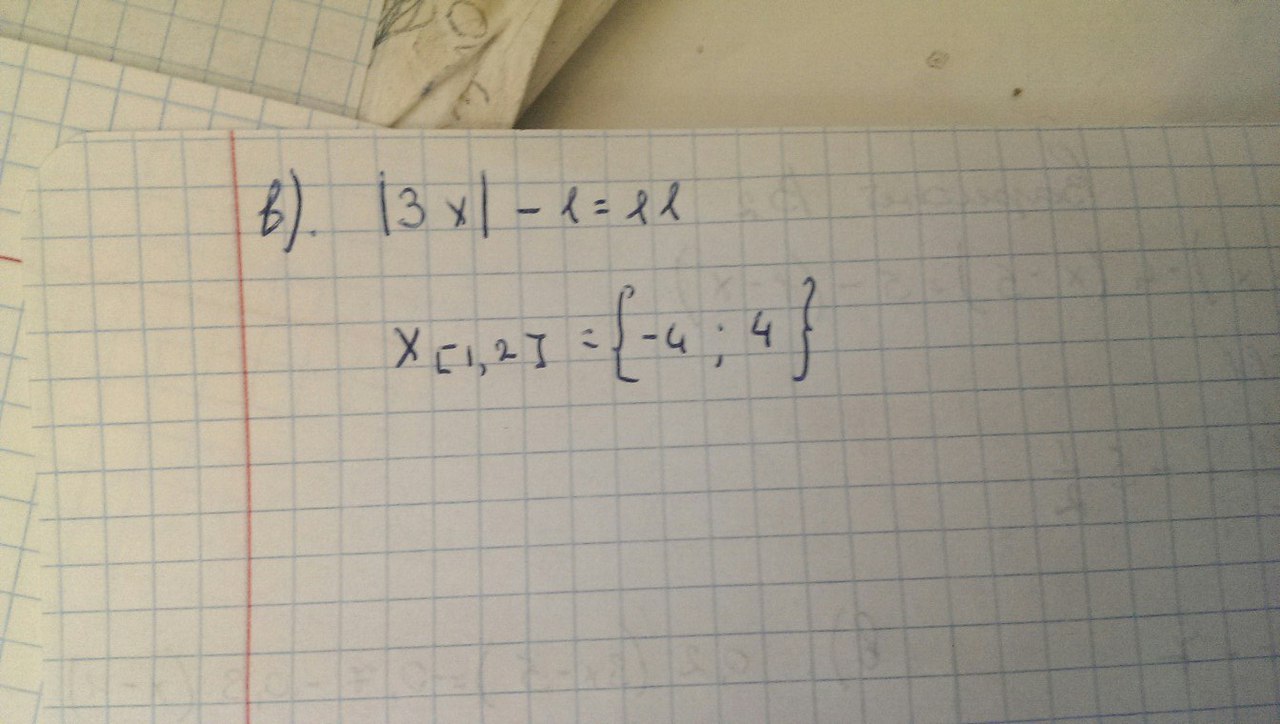 в). |3x| - 1 = 11
x[1,2] = {-4 ; 4}